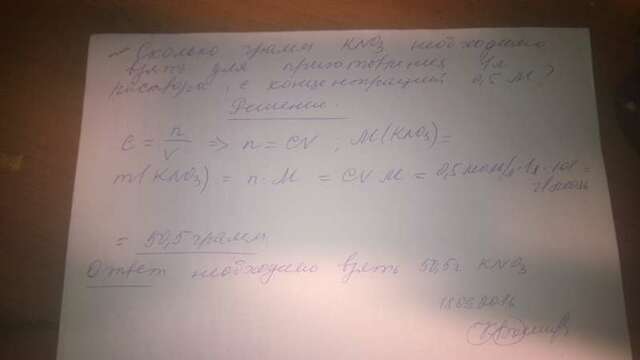 ~ Сколько грамм KNO3 необходимо
взять для приготовления 1л
раствора с концентрацией 0,5 М?
Решение.
C = n/V => n = CV ; M(KNO3) =
m(KNO3) = n·M = CVM = 0,5 моль/л·1л·101 г/моль =
= 50,5 грамм
Ответ необходимо взять 50,5г. KNO3